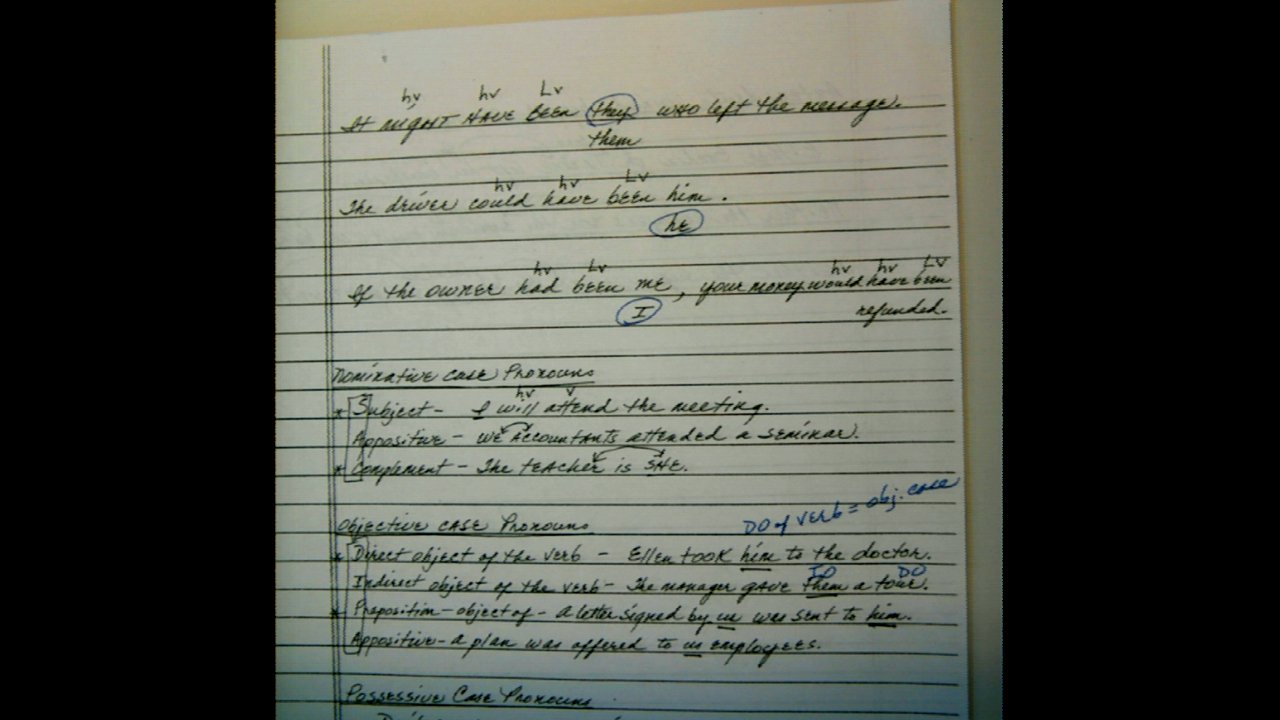 hv hv Lv
It might HAVE BEEN they who left the message.
them
hv hv Lv
The driver could have been him.
he
hv Lv hv hv Lv
If the owner had been me, your money would have been
I refunded.
Nominative case Pronouns
hv v
* Subject - I will attend the meeting.
Appositive - we Accountants attended a seminar.
* Complement - The teacher is SHE.
DO of verb = obj. case
Objective case Pronouns
* Direct object of the verb - Ellen took him to the doctor.
IO DO
Indirect object of the verb - The manager gave them a tour.
* Preposition - object of - a letter signed by us was sent to him.
Appositive - a plan was offered to us employees.
Possessive Case Pronouns